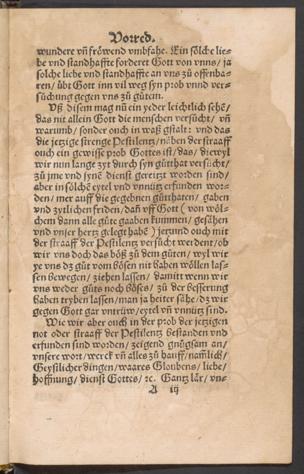 Vorred.
wundere vñ fröwend vmbfahe. Ein sölche lie-
be vnd standhaffte forderet Gott von vnns / ja
solche liebe vnd standhaffte an vns zů offenba-
ren / übt Gott inn vil weg syn prob vnnd ver-
sůchung gegen vns zů gůtem.
Vß disem mag nũ ein yeder leichtlich sehẽ /
das nit allein Gott die menschen versůcht / vñ
warumb / sonder ouch in waß gstalt: vnd das
die jetzige strenge Pestilentz / näben der straaff
ouch ein gewisse prob Gottes ist / das / diewyl
wir nun lange zyt durch syn gůtthat versůcht /
zů jme vnd syne dienst gereitzt worden sind /
aber in sölchẽ eytel vnd vnnütz erfunden wor-
den / mer auff die gegebnen gůtthaten / gaben
vnd zytlichen friden / dañ vff Gott ( von wöl-
chem dann alle gůte gaaben kummen / gesähen
vnd vnser hertz gelegt habẽ ) jetzund ouch mit
der straaff der Pestilentz versůcht werdent / ob
wir vns doch das böß zů dem gůten / wyl wir
ye vns dz gůt vom bösen nit haben wöllen las-
sen bewegen / ziehen lassen / damit wenn wir
vns weder gůts noch böses / zů der besserung
haben tryben lassen / man ja heiter sähe / dz wir
gegen Gott gar vntrüw / eytel vñ vnnütz sind.
Wie wir aber ouch in der prob der jetzigen
not oder straaff der Pestilentz bestanden vnd
erfunden sind worden / zeigend gnůgsam an /
vnsere wort / werck vñ alles zů hauff / namlich /
Geystlicher dingen / waares Gloubens / liebe /
hoffnung / dienst Gottes / ɾc. Gantz lär / vns-
A iij